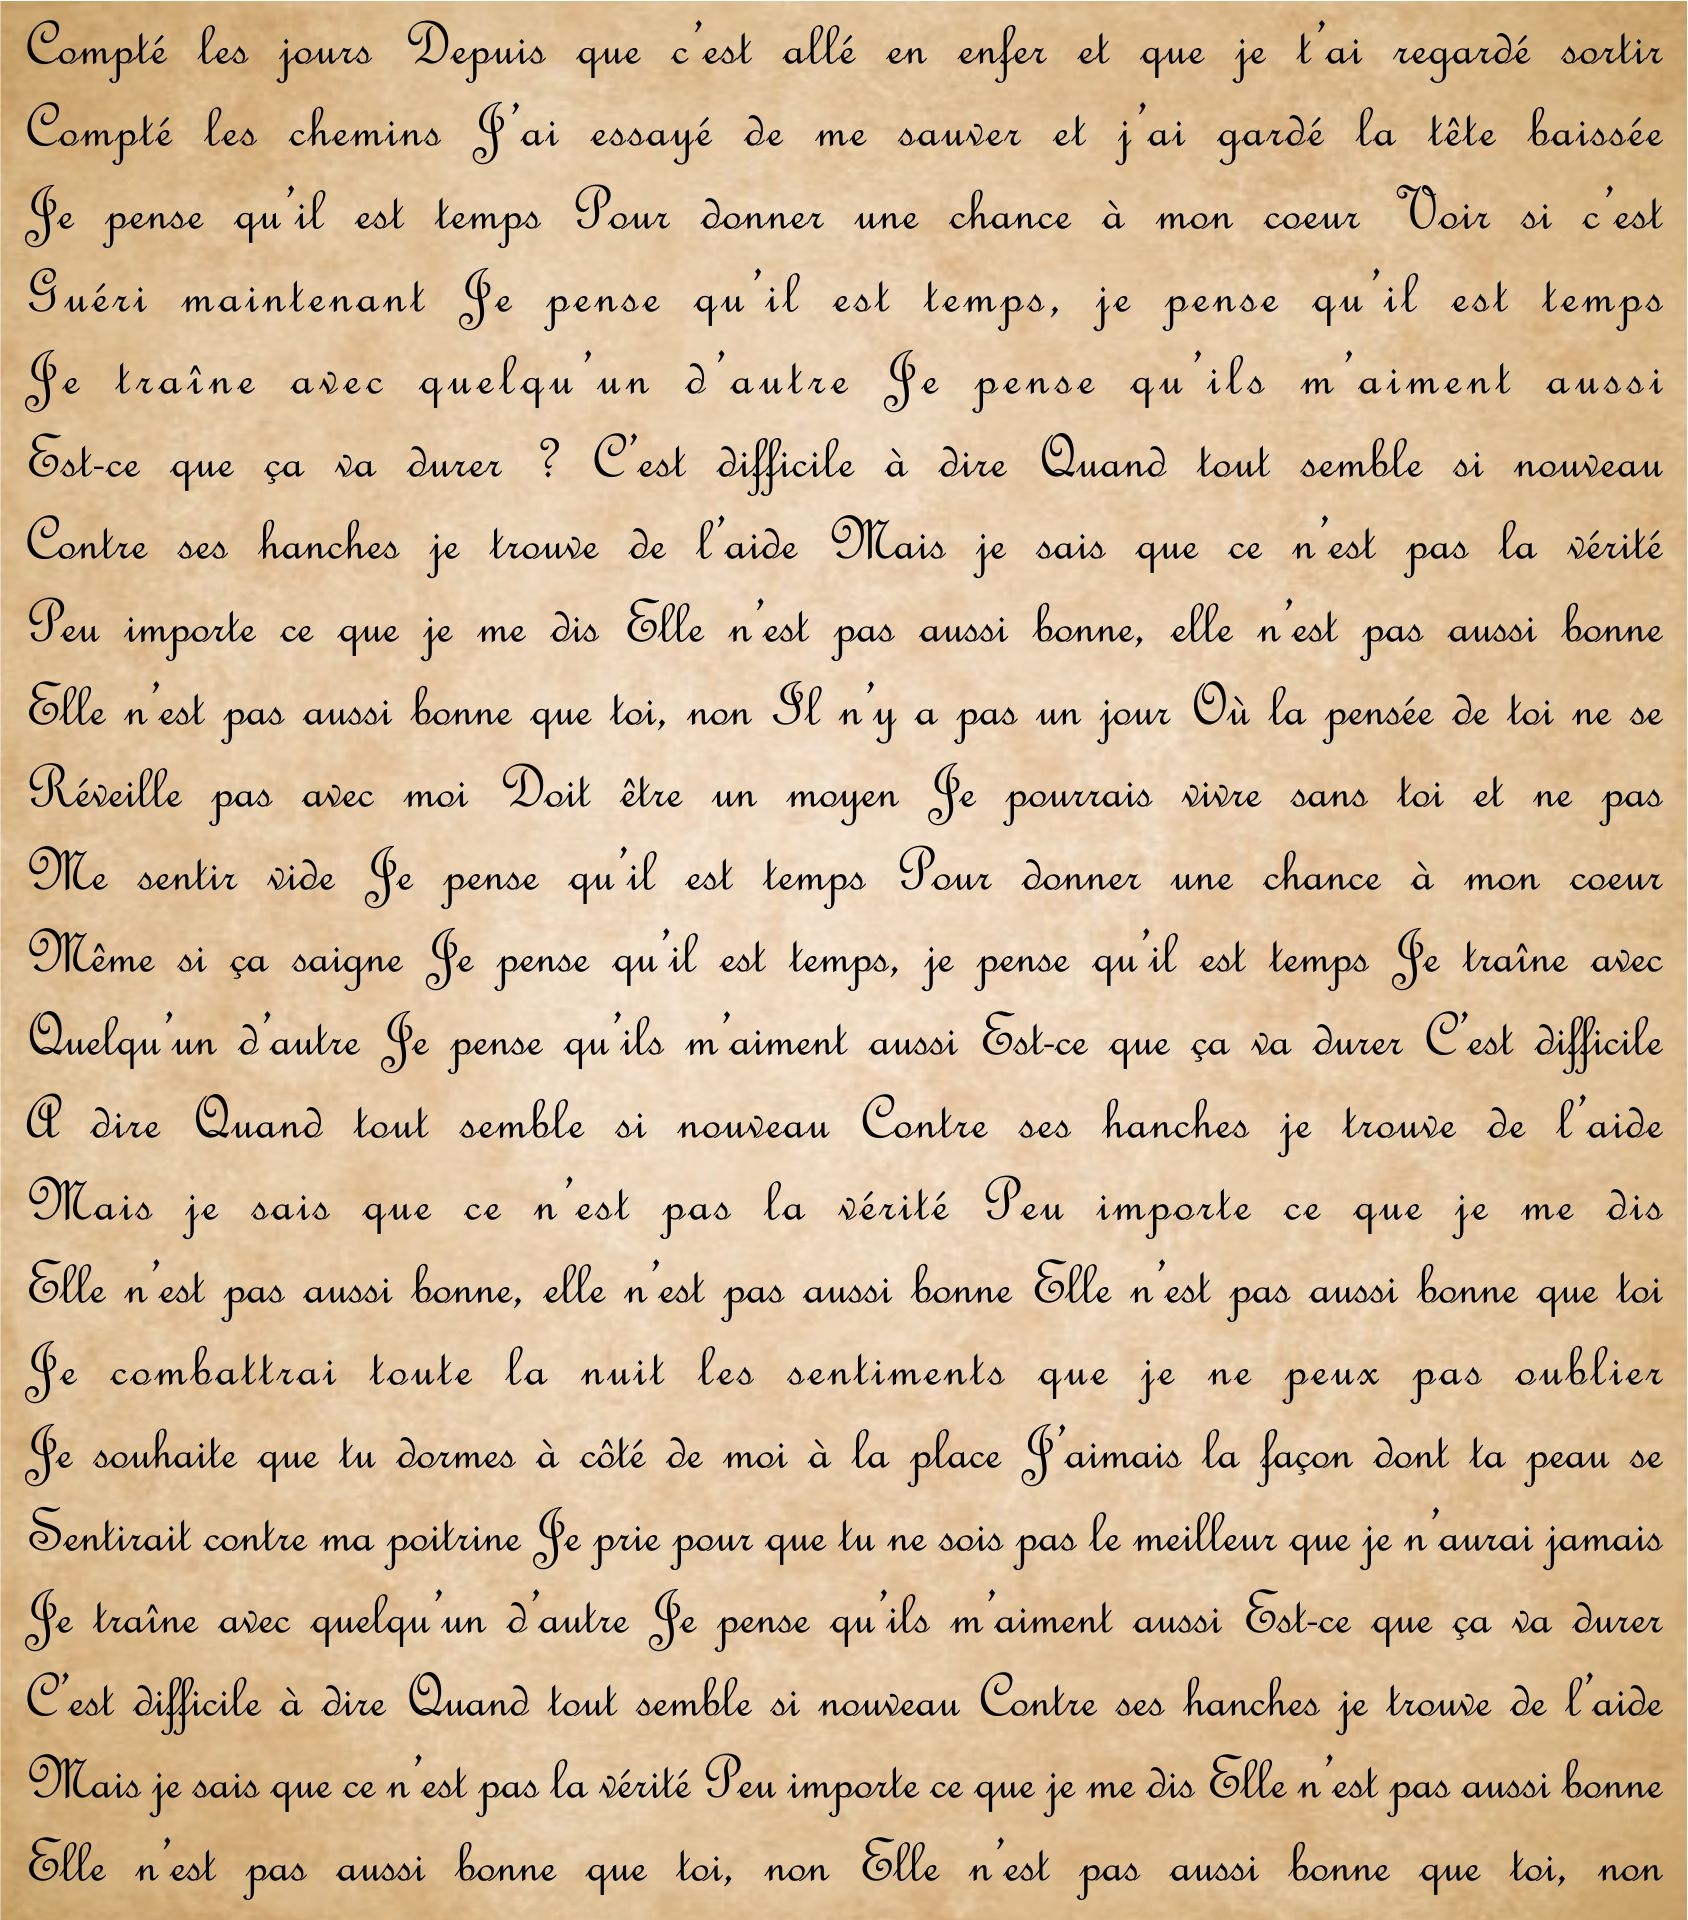 Compté les jours Depuis que c'est allé en enfer et que je t'ai regardé sortir
Compté les chemins J'ai essayé de me sauver et j'ai gardé la tête baissée
Je pense qu'il est temps Pour donner une chance à mon coeur Voir si c'est
Guéri maintenant Je pense qu'il est temps, je pense qu'il est temps
Je traîne avec quelqu'un d'autre Je pense qu'ils m'aiment aussi
Est-ce que ça va durer ? C'est difficile à dire Quand tout semble si nouveau
Contre ses hanches je trouve de l'aide Mais je sais que ce n'est pas la vérité
Peu importe ce que je me dis Elle n'est pas aussi bonne, elle n'est pas aussi bonne
Elle n'est pas aussi bonne que toi, non Il n'y a pas un jour Où la pensée de toi ne se
Réveille pas avec moi Doit être un moyen Je pourrais vivre sans toi et ne pas
Me sentir vide Je pense qu'il est temps Pour donner une chance à mon coeur
Même si ça saigne Je pense qu'il est temps, je pense qu'il est temps Je traîne avec
Quelqu'un d'autre Je pense qu'ils m'aiment aussi Est-ce que ça va durer C'est difficile
A dire Quand tout semble si nouveau Contre ses hanches je trouve de l'aide
Mais je sais que ce n'est pas la vérité Peu importe ce que je me dis
Elle n'est pas aussi bonne, elle n'est pas aussi bonne Elle n'est pas aussi bonne que toi
Je combattrai toute la nuit les sentiments que je ne peux pas oublier
Je souhaite que tu dormes à côté de moi à la place J'aimais la façon dont ta peau se
Sentirait contre ma poitrine Je prie pour que tu ne sois pas le meilleur que je n'aurai jamais
Je traîne avec quelqu'un d'autre Je pense qu'ils m'aiment aussi Est-ce que ça va durer
C'est difficile à dire Quand tout semble si nouveau Contre ses hanches je trouve de l'aide
Mais je sais que ce n'est pas la vérité Peu importe ce que je me dis Elle n'est pas aussi bonne
Elle n'est pas aussi bonne que toi, non Elle n'est pas aussi bonne que toi, non